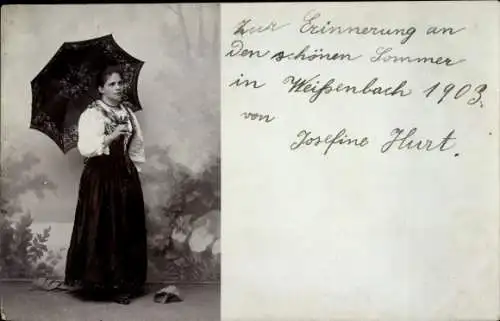 Zur Erinnerung an
den schönen Sommer
in Weißenbach 1903.
von
Josefine Hurt.